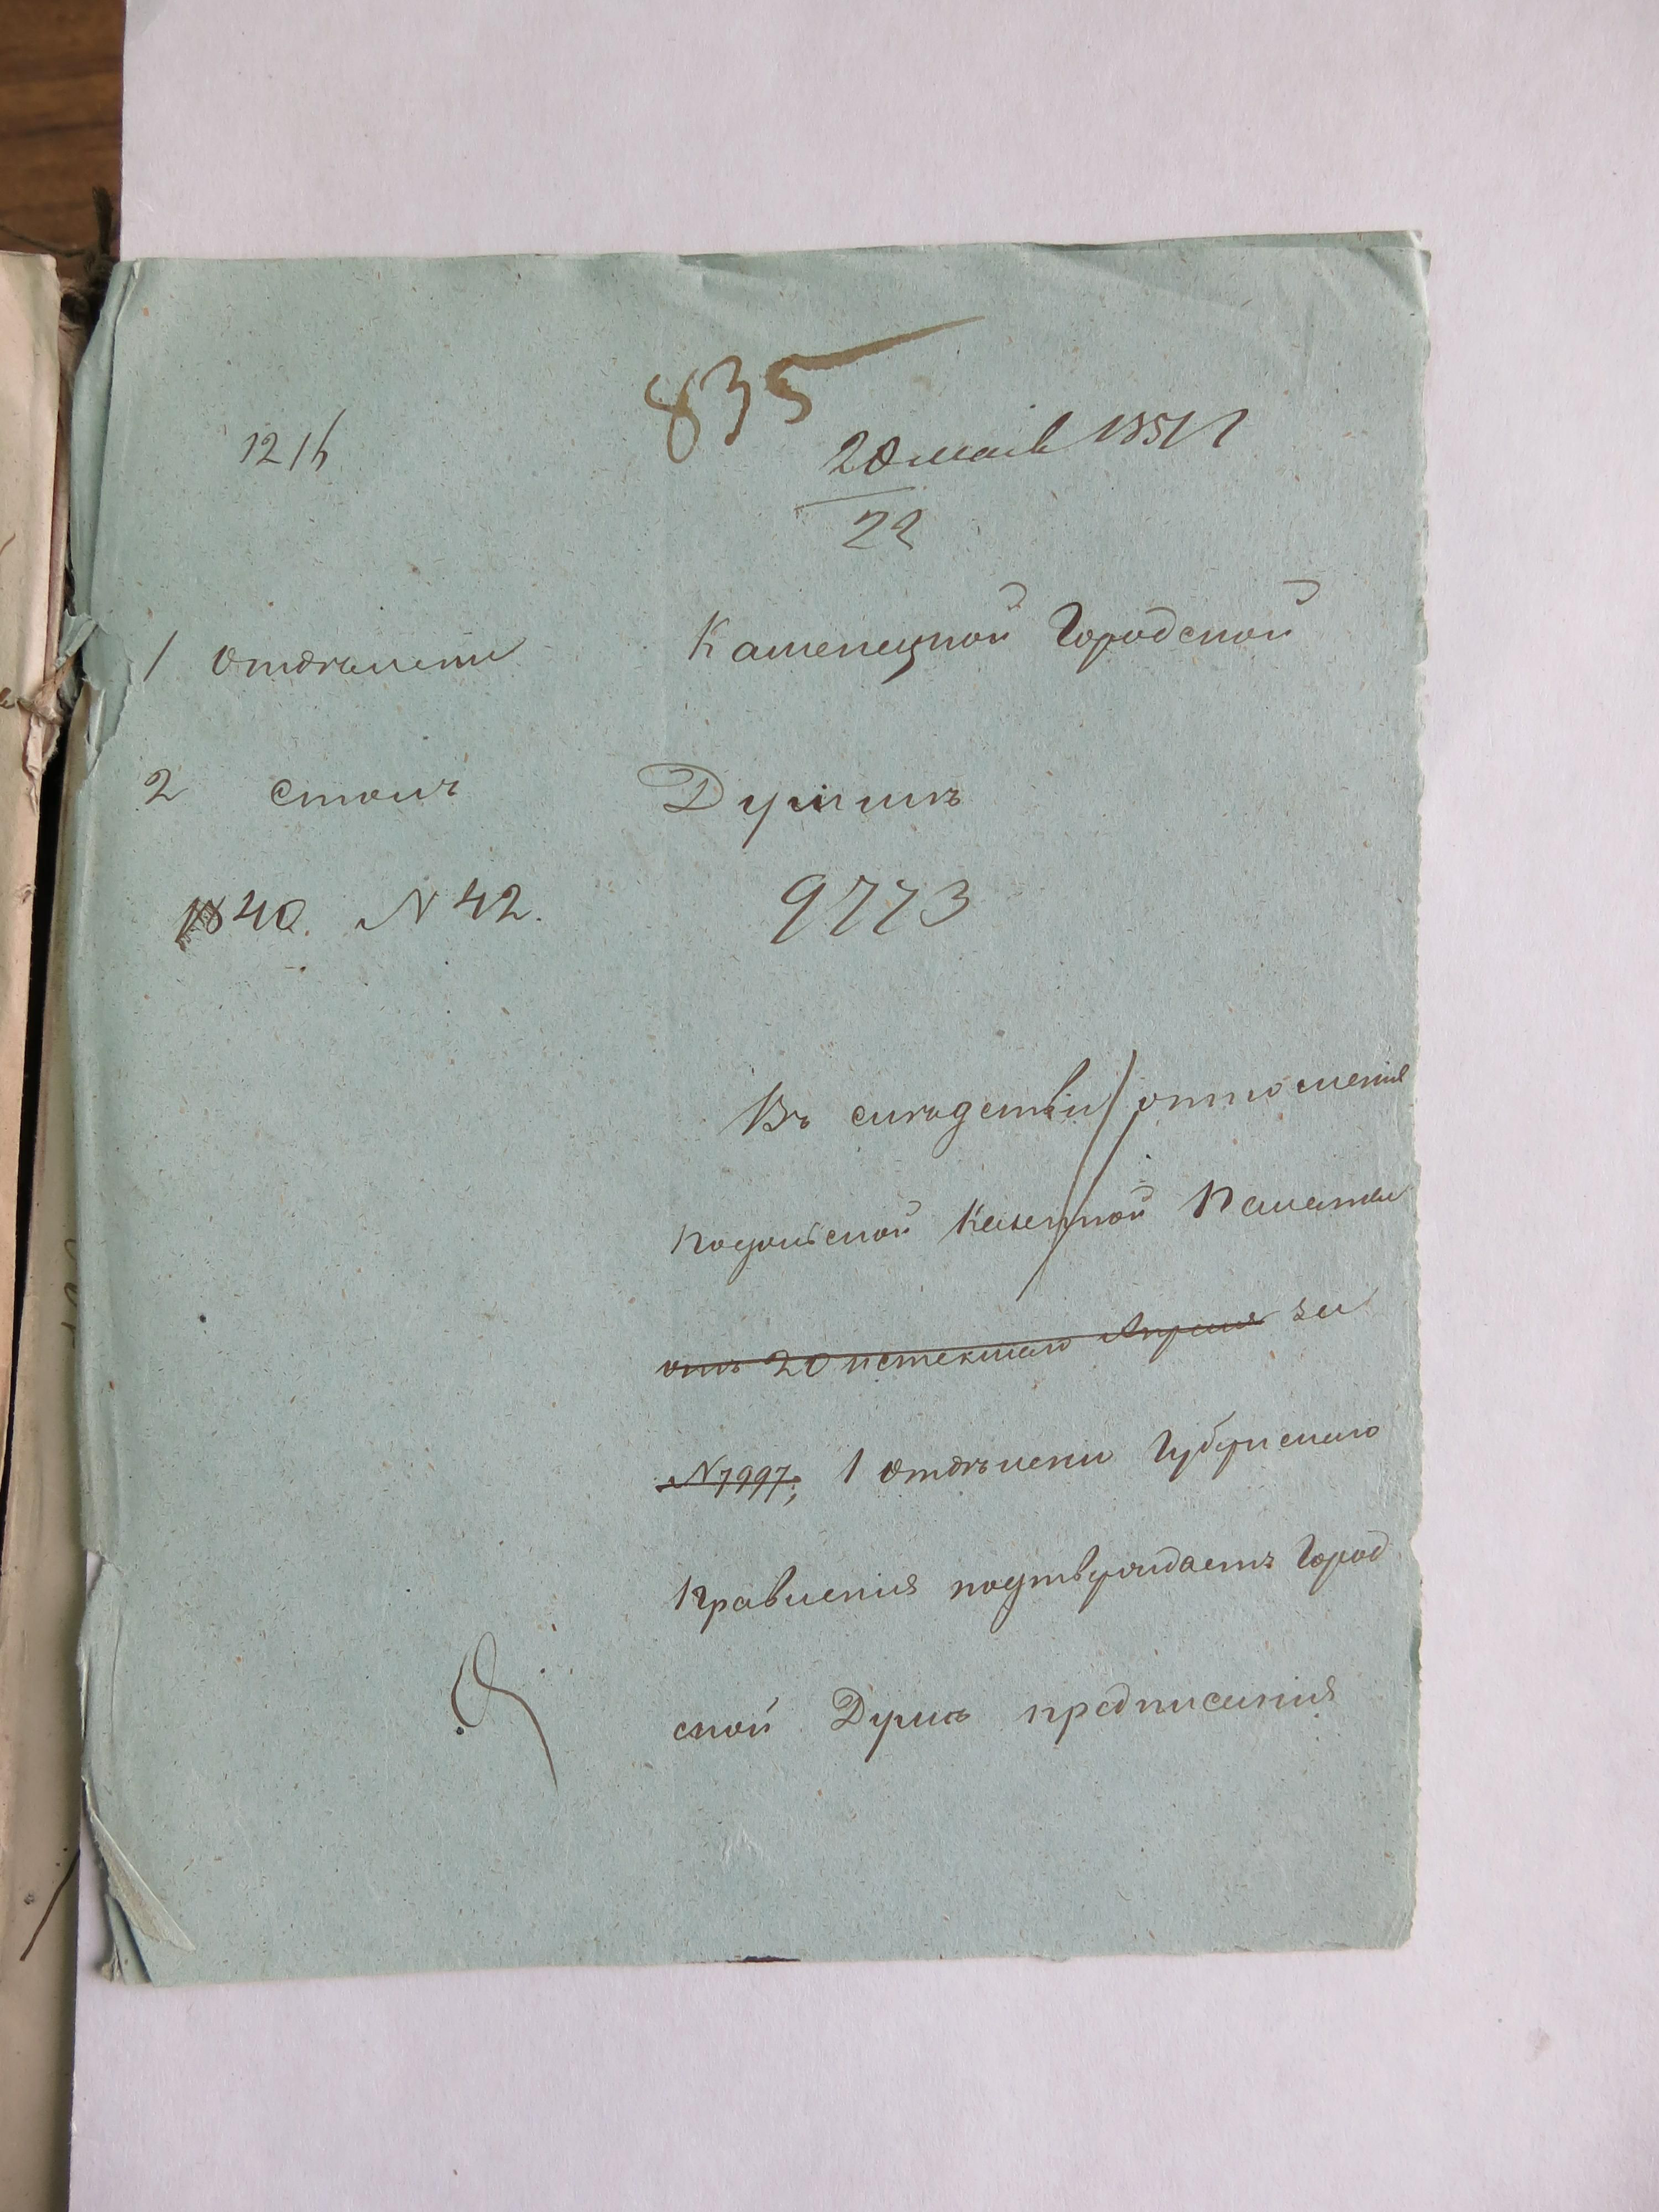 835
20 мая 1851 г
22
1 Отделение
2 столъ
1840. N 42.
Каменецкой Городской
Думѣ
9773
Въ следствіи отношенія
Подольской Казенной Палаты
отъ 20 истекшаго Апреля за
N 7997; 1 Отделение Губернскаго
Правленія подтверждаетъ Город
ской Думѣ предписанія